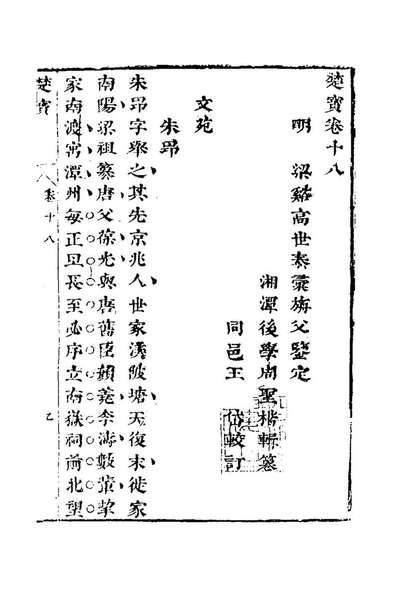 楚寶卷十八
明 梁谿高世泰彙旃父鑒定
湘潭後學周聖楷輯纂
同邑王 岱較訂
文苑
朱昂
朱昂字舉之其先京兆人世家渼陂塘天復末徙家
南陽梁祖篡唐父葆光與唐舊臣顏蕘李濤數輩挈
家南渡寓潭州每正旦長至必序立南嶽祠前北望
楚寶 卷十八 乙